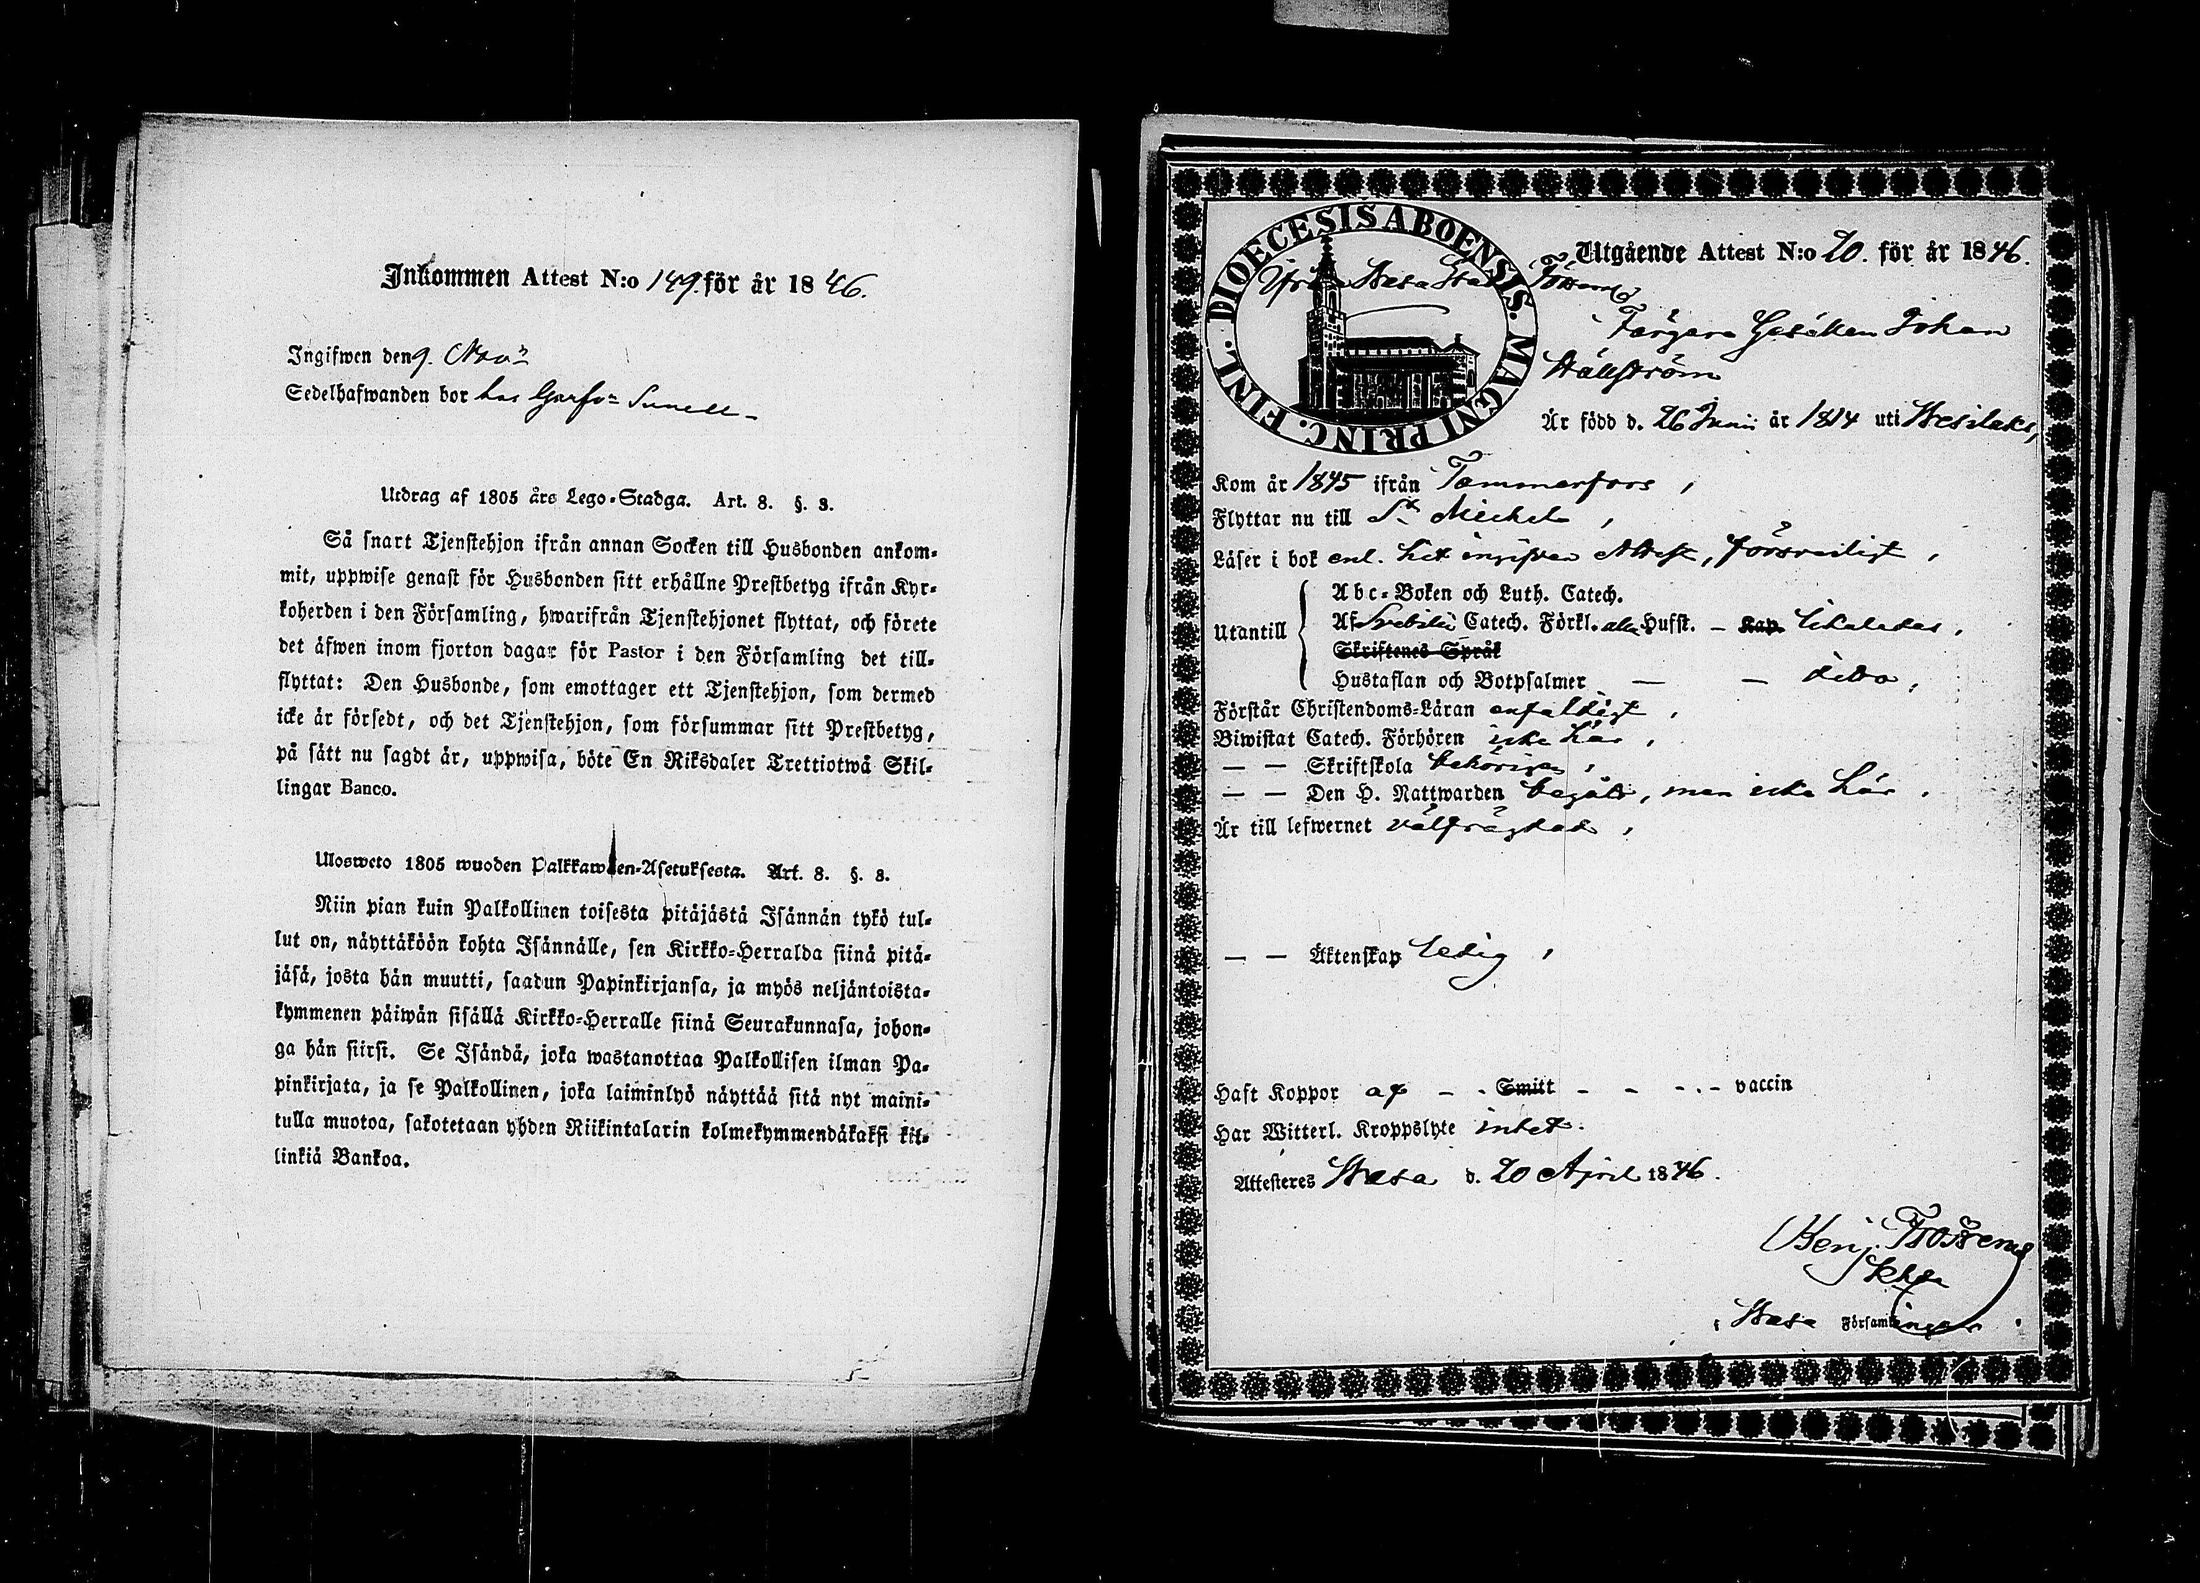 Inkommen Attest N:o 149. för år 1846.
Ingifwen den 9. Nov:r
Sedelhafwanden bor hos Garfv:n Sunell
Utdrag af 1805 års Lego-Stadga. Art. 8. §. 3.
Så snart Tjenstehjon ifrån annan Socken till Husbonden ankom-
mit, uppwise genast för Husbonden sitt erhållne Prestbetyg ifrån Kyr-
koherden i den Församling, hwarifrån Tjenstehjonet flyttat, och förete
det äfwen inom fjorton dagar för Pastor i den Församling det till-
flyttat: Den Husbonde, som emottager ett Tjenstehjon, som dermed
icke är försedt, och det Tjenstehjon, som försummar sitt Prestbetyg,
på sätt nu sagdt är, uppwisa, böte En Riksdaler Trettiotwå Skil-
lingar Banco.
Ulosweto 1805 wuoden Palkkawäen-Asetuksesta. Art. 8. §. 3.
Niin pian kuin Palkollinen toisesta pitäjästä Isännän tykö tul-
lut on, näyttäköön kohta Isännälle, sen Kirkko-Herralda siinä pitä-
jäsä, josta hän muutti, saadun Papinkirjansa, ja myös neljäntoista-
kymmenen päiwän sisällä Kirkko-Herralle siinä Seurakunnasa, johon-
ga hän siirsi. Se Isändä, joka wastanottaa Palkollisen ilman Pa-
pinkirjata, ja se Palkollinen, joka laiminlyö näyttää sitä nyt maini-
tulla muotoa, sakotetaan yhden Riikintalarin kolmekymmendäkaksi kil-
linkiä Bankoa.
DIOECESIS ABOENSIS. MAGNI PRINC. FINL.
Utgående Attest N:o 20. för år 1846.
Ifrån Wasa Stads Förs.
Färgare Gesällen Johan
Hällström
Är född d. 26 Junii år 1814 uti Wesilaks,
Kom år 1845 ifrån Tammerfors,
Flyttar nu till S:t Michel,
Läser i bok enl. hit ingifven Attest, försvarligt,
Utantill
Abc-Boken och Luth. Catech.
Af Svebilii Catech. Förkl. alla Hufst. – Kap. likaledes,
Skriftenes Språk
Hustaflan och Botpsalmer — — dito,
Förstår Christendoms-Läran enfaldigt,
Biwistat Catech. Förhören icke här,
— — Skriftskola behörigen,
— — Den H. Nattwarden begått, men icke här,
Är till lefwernet välfrägdad,
— — Äktenskap ledig,
Haft Koppor af – - Smitt - - - . – vaccin
Har Witterl. Kroppslyte intet.
Attesteres Wasa d. 20 April 1846.
Benj. Frosterus
Khde
i Wasa Församlingar.